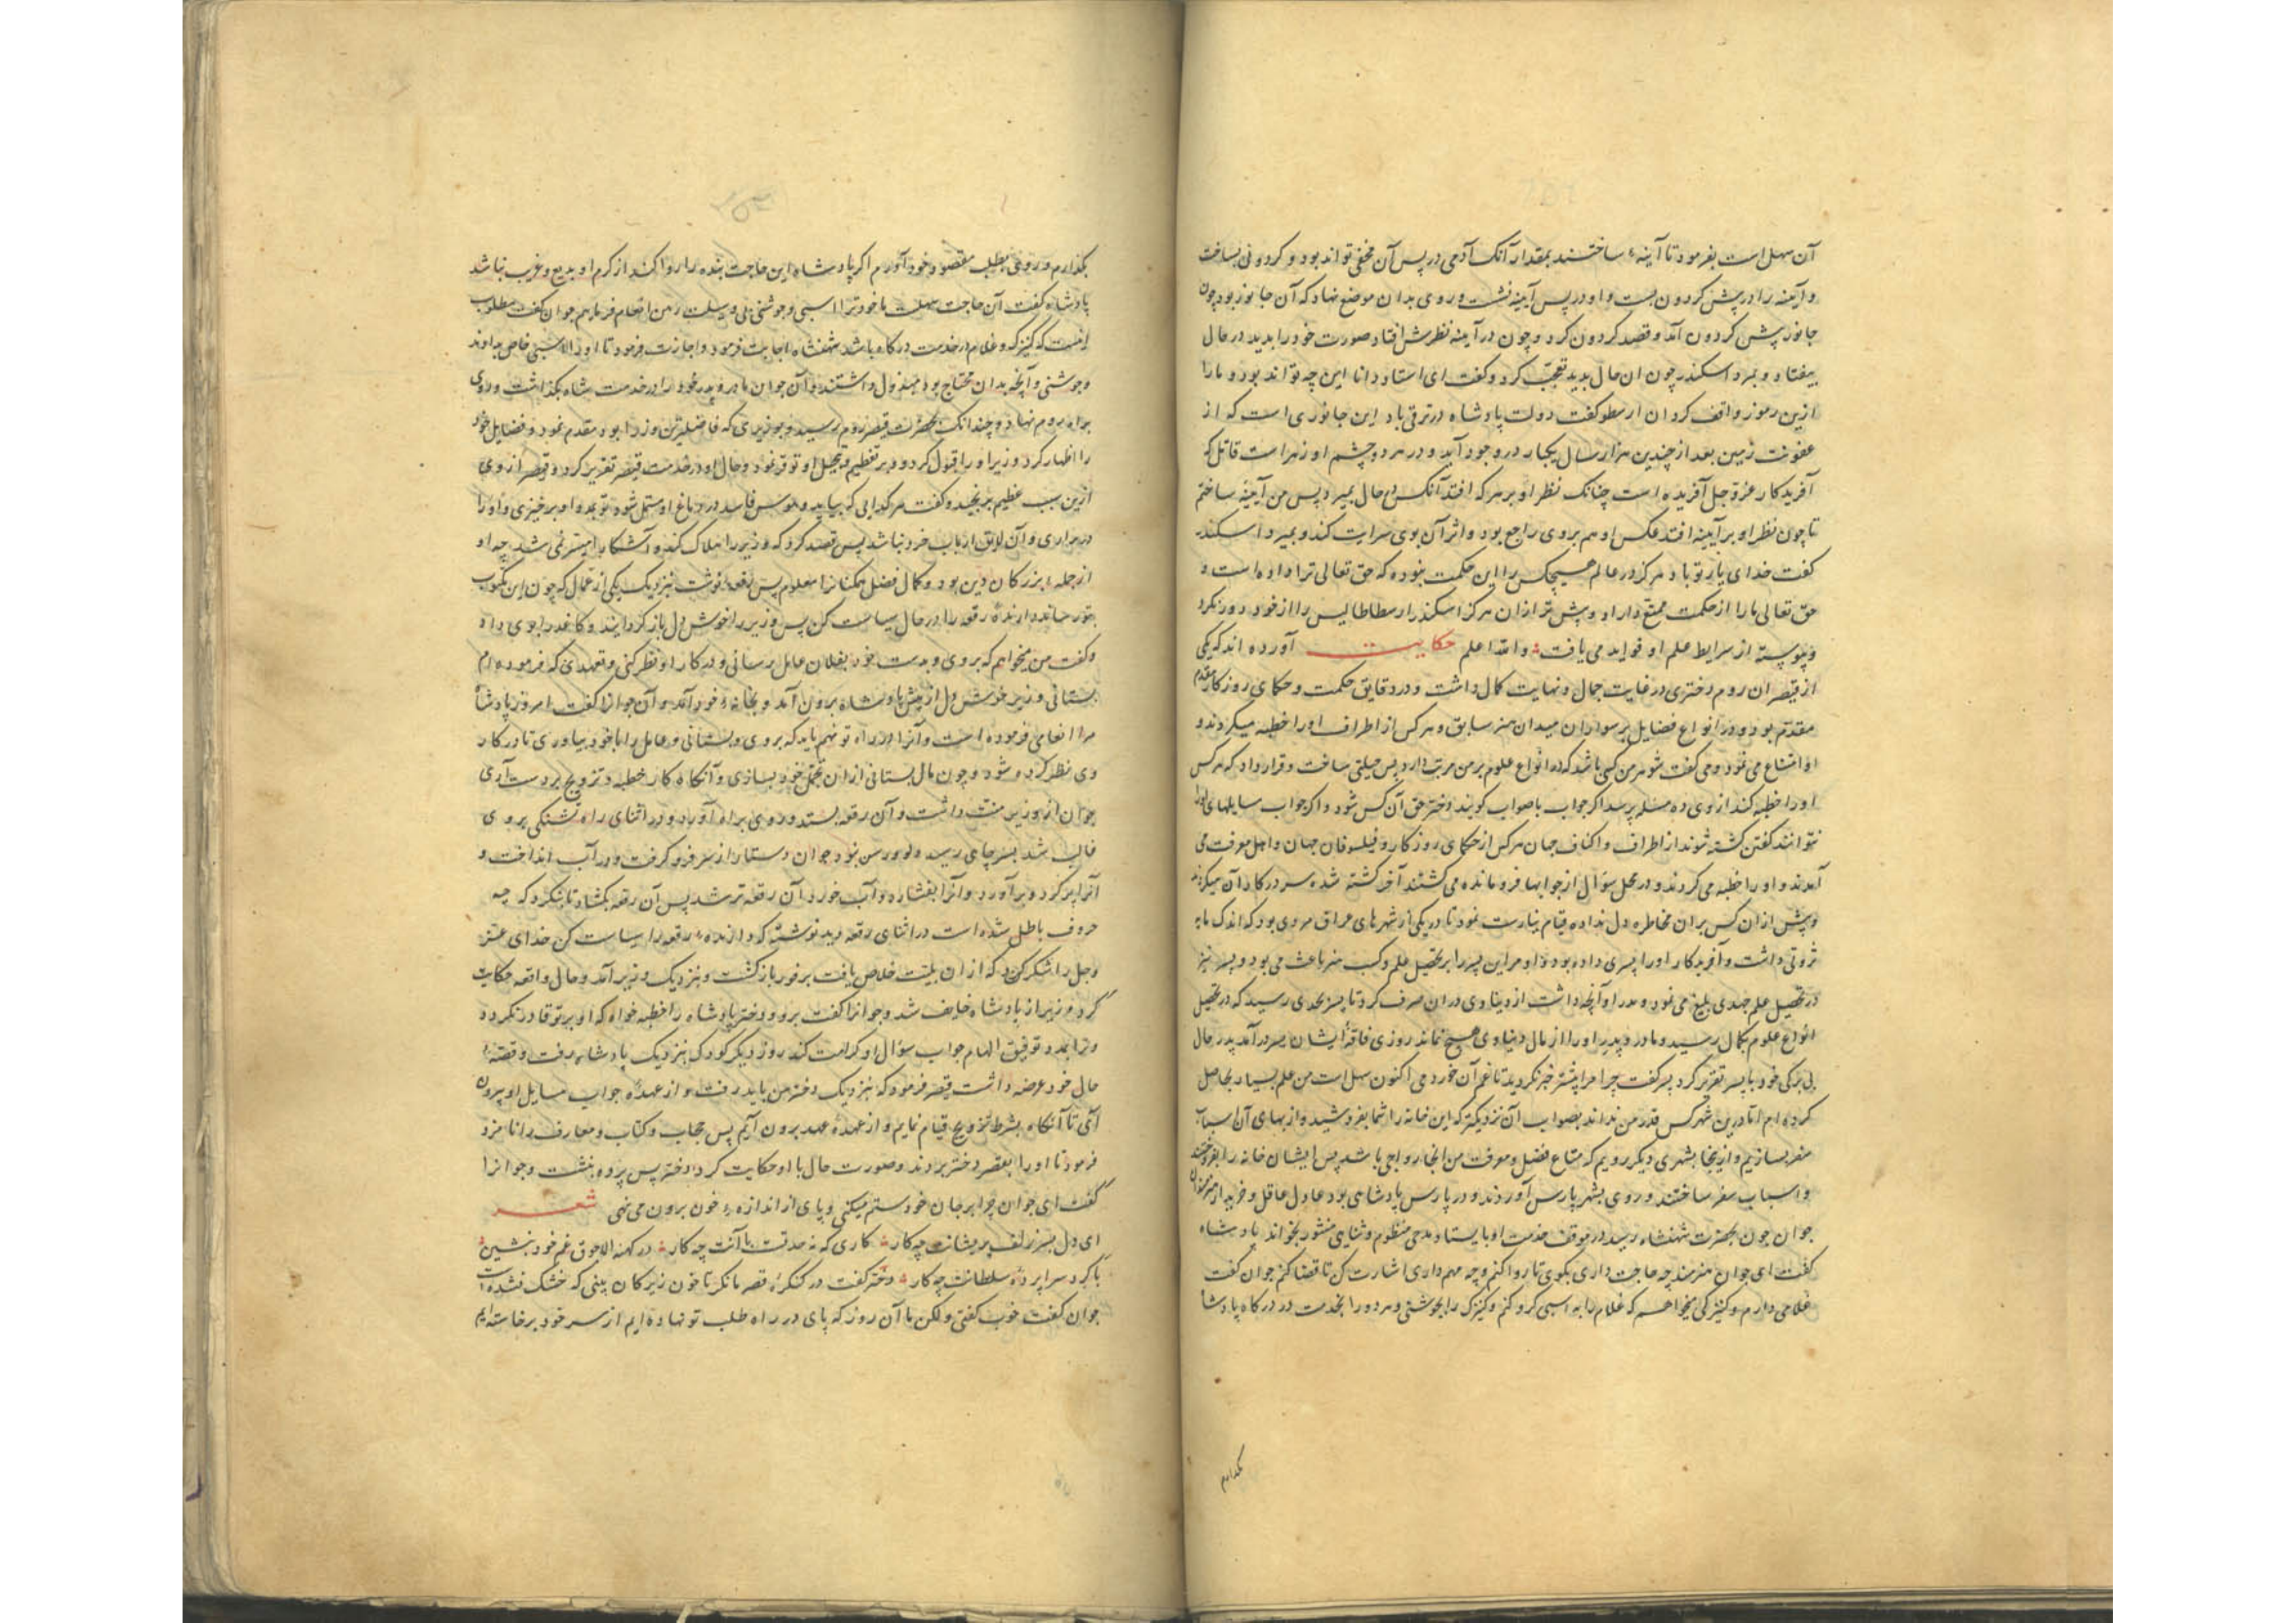 آن سهل است بفرمود تا آینهٔ ساختند بمقدار آنک آدمی در پس آن مخفی تواند بود و کردونی بساخت
و آینه را در پیش کردون بست و او در پس آینه نشست و روی بدان موضع نهاد که آن جانور بود چون
جانور پیش کردون آمد و قصد کردون کرد و چون در آینه نظرش افتاد صورت خود را بدید در حال
بیفتاد و بمرد اسکندر چون ان حال بدید تعجب کرد و کفت ای استاد دانا این چه تواند بود و مارا
ازین رموز واقف کردان ارسطو کفت دولت پادشاه در ترقی باد این جانوری است که از
عفونت زمین بعد از چندین هزار سال یکبار در وجود آید و در هر دو چشم او زهر است قاتل که
آفریدکار عزّ و جل آفریده است چنانک نظر او بر هر که افتد آنکس در حال بمیرد پس من آینهٔ ساختم
تا چون نظر او بر آینه افتد عکس او هم بروی راجع بود و اثر آن بوی سرایت کند و بمیرد اسکندر
کفت خدای یار تو باد هرکز در عالم هیچکس را این حکمت نبوده که حق تعالی ترا داده است و
حق تعالی مارا از حکمت ممتع دارد و پیش تر ازان هرکز اسکندر ارسطاطالیس را از خود دور نکرد
و پیوسته از شرایط علم او فواید می یافت والله اعلم حکایت آورده اند که یکی
از قیصران روم دختری در غایت جمال و نهایت کمال داشت و در دقایق حکمت و حکمای روزکار
مقدم بود و در انواع فضایل بر سواران میدان هنر سابق و هر کس از اطراف اورا خطبه میکردند و
او امتناع می نمود و می کفت شوهر من کسی باشد که در انواع علوم بر من مرتبت دارد پس حیلتی ساخت و قرار داد که هر کس
اورا خطبه کند از وی ده مسئله پرسد اکر جواب با صواب کویند دختر حق آن کس شود و اکر جواب سایلهای اورا
نتوانند کفتن کشته شوند از اطراف و اکناف جهان هر کس از حکمای روزکار و فیلسوفان جهان و اهل معرفت می
آمدند و اورا خطبه می کردند و در محل سؤال از جوابها فرو مانده می کشتند آخر کشته شده سر در کار آن میکردند
و پیش ازان کس بران مخاطره دل نداده قیام نیارست نمود تا در یکی از شهرهای عراق مردی بود که اندک مایه
ثروتی داشت و آفریدکار اورا پسری داده بود و او مر این پسر را بر تحصیل علم و کسب هنر باعث می بود و پسر نیز
در تحصیل علم جدی بلیغ می نمود و پدر او آنچه داشت از دنیاوی دران صرف کرد تا پسر بحدی رسید که در تحصیل
انواع علوم بکمال رسید و مادر و پدر اورا از مال دنیاوی هیچ نماند روزی فاقهٔ ایشان بسر درآمد پدر حال
بی برکی خود با پسر تقریر کرد پسر کفت چرا مرا پیشتر خبر نکردید تا غم آن خوردمی اکنون سهل است من علم بسیار بحاصل
کرده ام اما درین شهر کس قدر من نداند بصواب آن نزدیکتر که این خانه را شما بفروشید و از بهای آن اسباب
سفر بسازیم و ازینجا بشهری دیکر رویم که متاع فضل و معرفت من انجا رواجی باشد پس ایشان خانه را بفروختند
و اسباب سفر ساختند و روی بشهر پارس آوردند و در پارس پادشاهی بود عادل عاقل و خریدار هنرمندان
جوان چون بحضرت شهنشاه رسید در موقف خدمت او بایستاد مدحی منظوم و ثنایی منثور بخواند پادشاه
کفت ای جوان هنرمند چه حاجت داری بکوی تا روا کنم و چه مهم داری اشارت کن تا قضا کنم جوان کفت
غلامی دارم و کنیزکی میخواهم که غلام را به اسبی کرو کنم و کنیزک را بجوشنی و هر دو را بخدمت در درکاه پادشاه
بکذارم
بکذارم و روی بطلب مقصود خود آورم اکر پادشاه این حاجت بنده را روا کند از کرم او بدیع و غریب نباشد
پادشاه کفت این حاجت سهلست ما خود ترا اسبی و جوشنی بی وسیلت رهن انعام فرماییم جوان کفت مطلوب
اینست که کنیزک و غلام در خدمت درکاه باشد شهنشاه اجابت فرمود و اجازت فرمود تا اورا اسبی خاص بدادند
و جوشنی و آنچه بدان محتاج بود مبذول داشتند و آن جوان مادر و پدر خود را در خدمت شاه بکذاشت و روی
براه روم نهاد و چندانک بحضرت قیصر روم رسید و بوزیری که فاضلترین وزرا بود مقدم نمود و فضایل خود
را اظهار کرد وزیر اورا قبول کرد و در تعظیم و تبجیل او توقر نمود و حال او در خدمت قیصر تقریر کرد و قیصر از وی
ازین سبب عظیم برنجید و کفت هر کدایی که بیاید و هوس فاسد در دماغ او مستعمل شود تو بمدد او برخیزی و اورا
در مداری و آن لایق ارباب خرد نباشد پس قصد کرد که وزیر را هلاک کند و آشکارا میسر نمی شد چه او
از جمله بزرکان دین بود و کمال فضل همکنانرا معلوم پس رقعه نوشت بنزدیک یکی از عمال که چون این مکتوب
بتو رساند دارندهٔ رقعه را در حال سیاست کن پس وزیر را خوش دل باز کردانید و کاغذ را بوی داد
و کفت من میخواهم که بروی و بدست خود بفلان عامل رسانی و در کار او نظر کنی و تعهدی که فرموده ام
بستانی وزیر خوش دل از پیش پادشاه برون آمد و بخانهٔ خود آمد و آن جوانرا کفت امروز پادشاه
مرا انعامی فرموده است و آنرا در راه تو نهم باید که بروی و بستانی و عامل را با خود بیاوری تا در کار
وی نظر کرده شود و چون مال بستانی ازان تجمل خود بسازی و آنکاه کار خطبه و تزویج بردست آری
جوان از وزیر منت داشت و آن رقعه بستد و روی براه آورد و در اثنای راه تشنکی بروی
غالب شد بسر چاهی رسید دلو و رسن نبود جوان دستار از سر فرو کرفت و در آب انداخت و
آنرا تر کرد و برآورد و آنرا بفشارد و آب خورد آن رقعه تر شد پس آن رقعه بکشاد تا بنکرد که چه
حروف باطل شده است در اثنای رقعه دید نوشته که دارندهٔ رقعه را سیاست کن خدای عز
وجل را شکر کرد که از ان بلیت خلاص یافت بر فور بازکشت و بنزدیک وزیر آمد و حال واقعه حکایت
کرد وزیر از پادشاه خایف شد و جوانرا کفت برو و دختر پادشاه را خطبه خواه که او بر تو قادر نکردد
و ترا بمدد توفیق الهام جواب سؤال او کرامت کند روز دیکر کودک بنزدیک پادشاه رفت و قصهٔ
حال خود عرضه داشت قیصر فرمود که بنزدیک دختر من باید رفت و از عهدهٔ جواب مسایل او بیرون
آی تا آنکاه بشرط تزویج قیام نمایم و از عهدهٔ عهد برون آیم پس حجاب و کتاب و معارف را نامزد
فرمود تا اورا بقصر دختر بردند و صورت حال با او حکایت کرد دختر پس پرده بنشست و جوانرا
کفت ای جوان چرا بر جان خود ستم میکنی و پای از اندازهٔ خون برون می نهی شعر
ای دل بسر زلف پریشانت چه کار کاری که نه حد تست با آنت چه کار در کهنه الاجوق غم خود بنشین
با کرد سراپردهٔ سلطانت چه کار دختر کفت در کنکرهٔ قصر ما نکر تا خون زیرکان بینی که خشک نشده است
جوان کفت خوب کفتی ولکن ما آن روز که پای در راه طلب تو نهاده ایم از سر خود برخاسته ایم